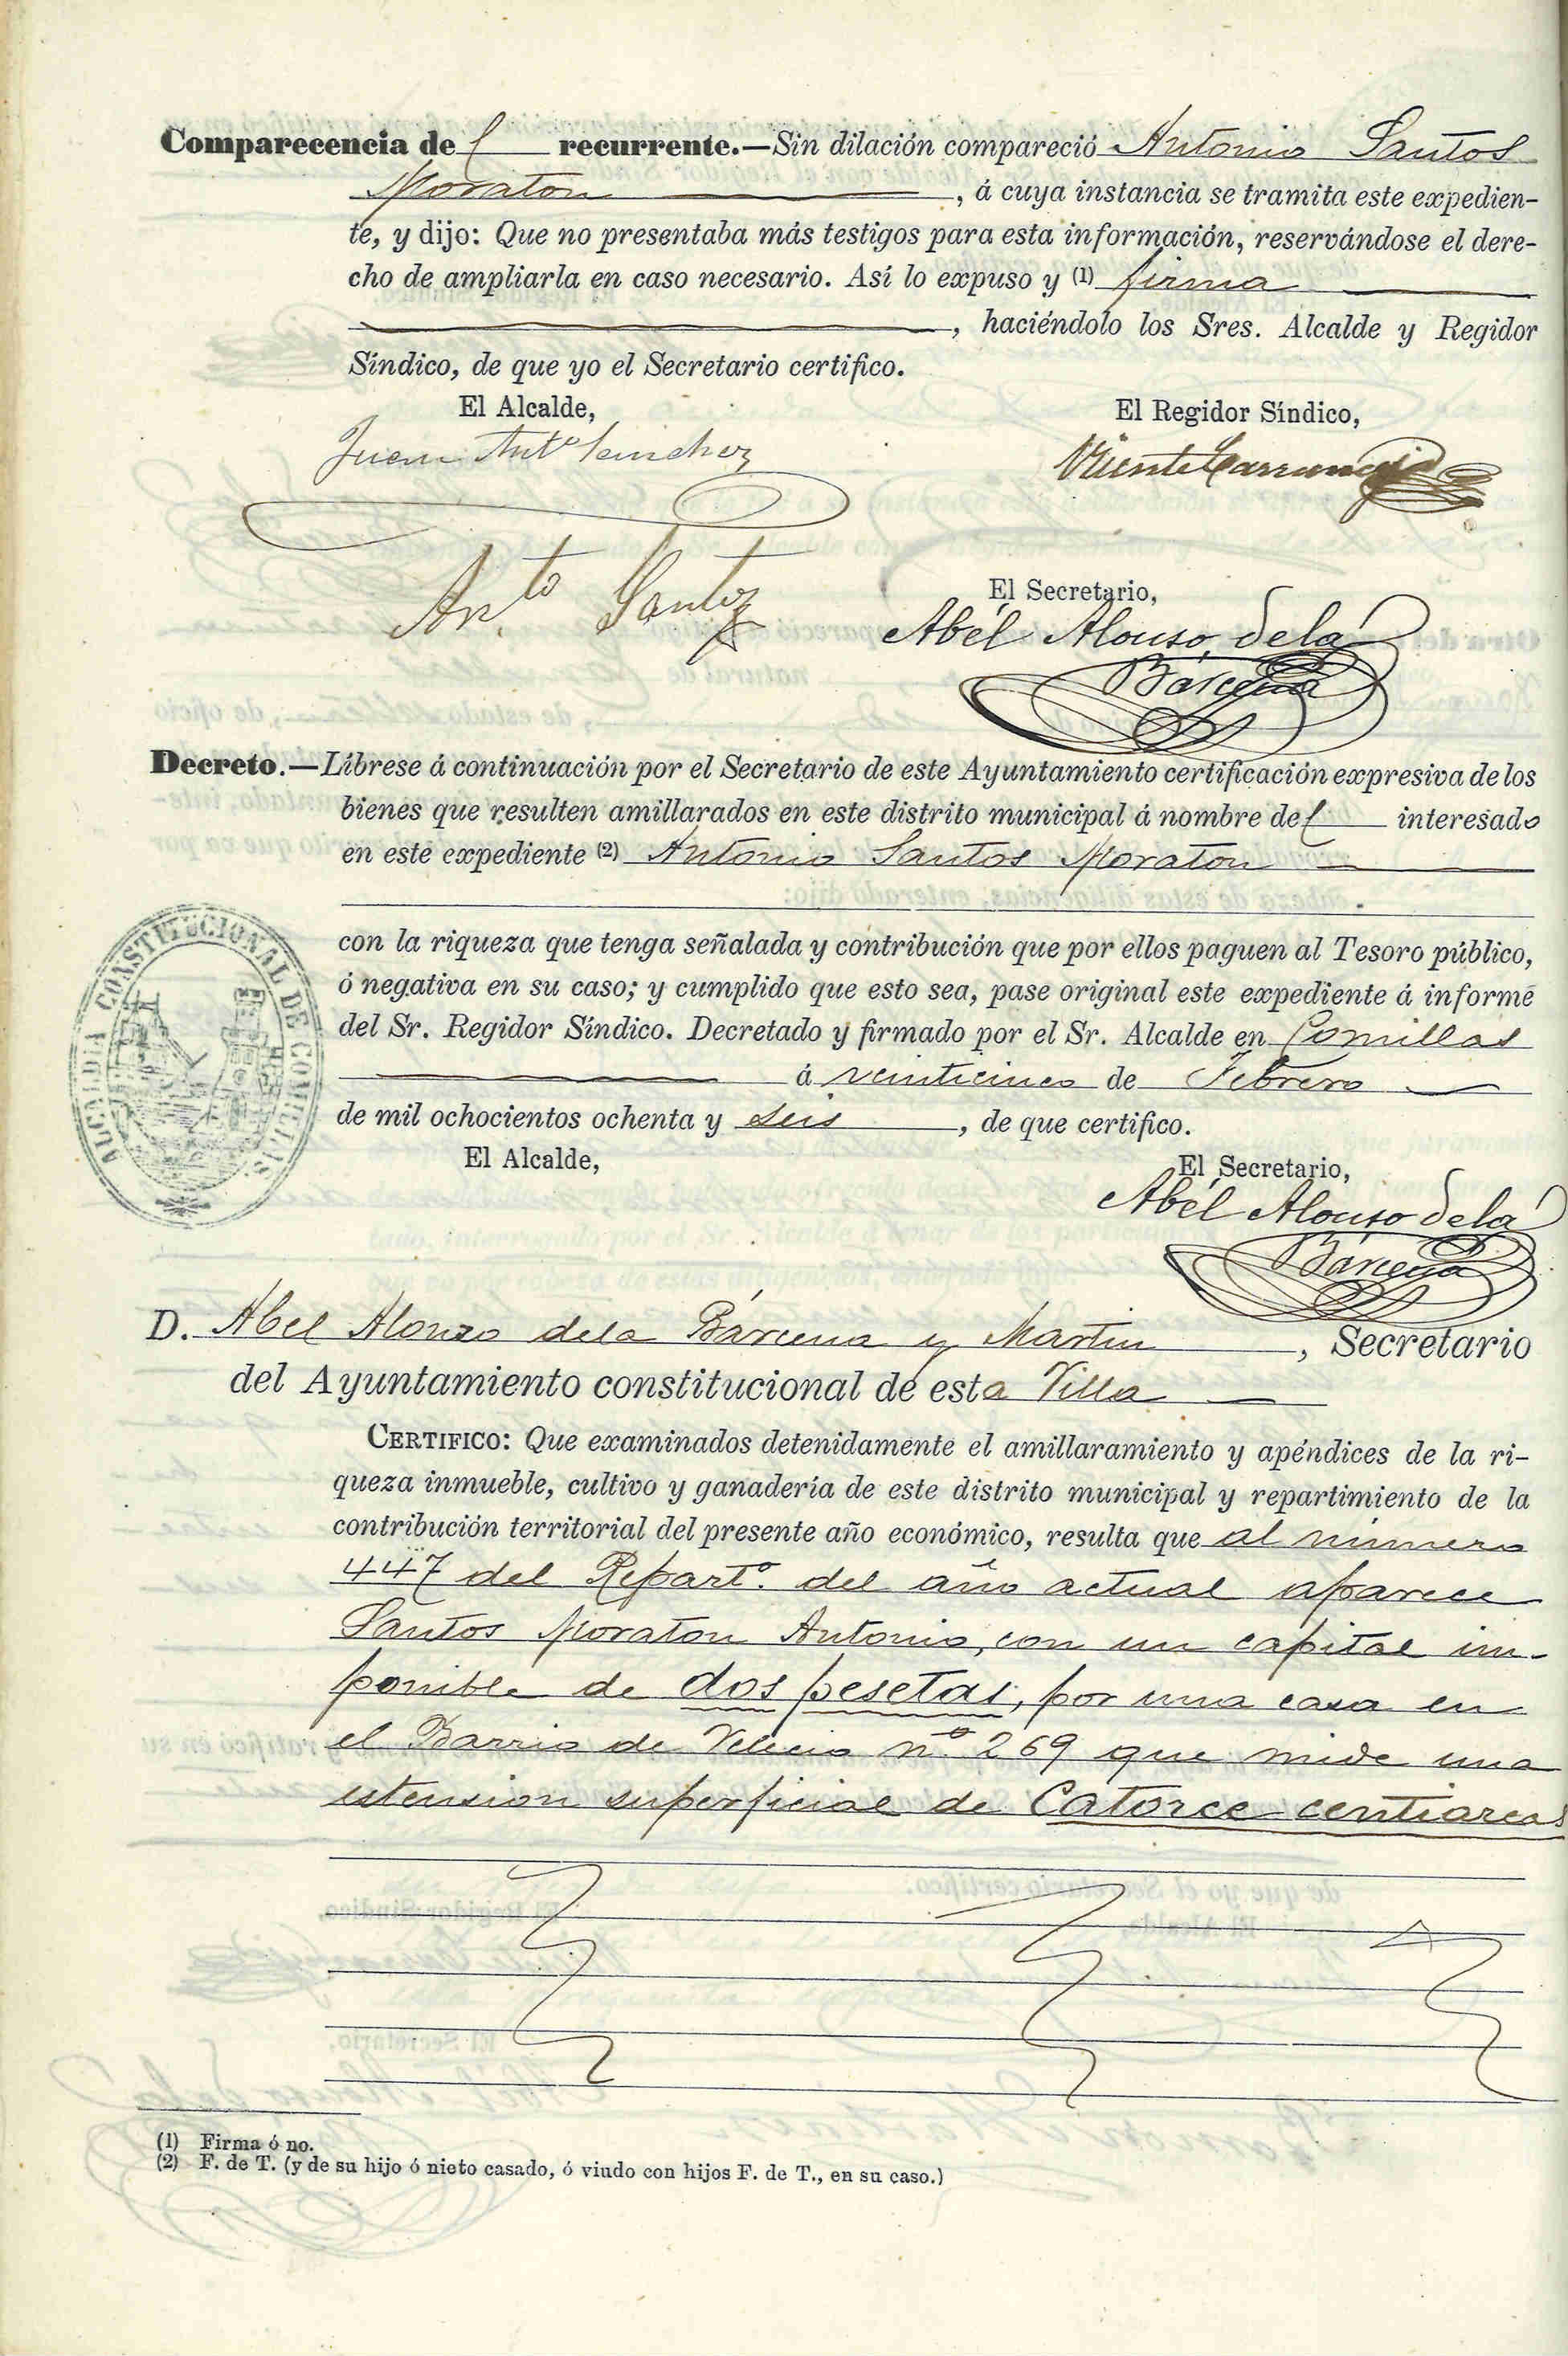 Comparecencia del recurrente.—Sin dilación compareció Antonio Santos
Moraton, á cuya instancia se tramita este expedien-
te, y dijo: Que no presentaba más testigos para esta información, reservándose el dere-
cho de ampliarla en caso necesario. Así lo expuso y (1) firma
, haciéndolo los Sres. Alcalde y Regidor
Síndico, de que yo el Secretario certifico.
El Alcalde,
El Regidor Síndico,
Juan Antº Sanchez
Vicente
Anto Santos
El Secretario,
Abél Alonso de la
Bárcena
Decreto.—Líbrese á continuación por el Secretario de este Ayuntamiento certificación expresiva de los
bienes que resulten amillarados en este distrito municipal á nombre del interesado
en este expediente (2) Antonio Santos Moraton
con la riqueza que tenga señalada y contribución que por ellos paguen al Tesoro público,
ó negativa en su caso; y cumplido que esto sea, pase original este expediente á informe
del Sr. Regidor Síndico. Decretado y firmado por el Sr. Alcalde en Comillas
á veinticinco de Febrero
de mil ochocientos ochenta y seis, de que certifico.
ALCALDÍA CONSTITUCIONAL DE COMILLAS
El Alcalde,
El Secretario,
Abél Alonso de la
Bárcena
D. Abel Alonso de la Bárcena y Martin, Secretario
del Ayuntamiento constitucional de esta Villa
CERTIFICO: Que examinados detenidamente el amillaramiento y apéndices de la ri-
queza inmueble, cultivo y ganadería de este distrito municipal y repartimiento de la
contribución territorial del presente año económico, resulta que al número
447 del Repartº. del año actual aparece
Santos Moraton Antonio, con un capital im-
ponible de dos pesetas, por una casa en
el Barrio de Velecio nº 269 que mide una
estension superficial de Catorce centiareas
(1) Firma ó no.
(2) F. de T. (y de su hijo ó nieto casado, ó viudo con hijos F. de T., en su caso.)